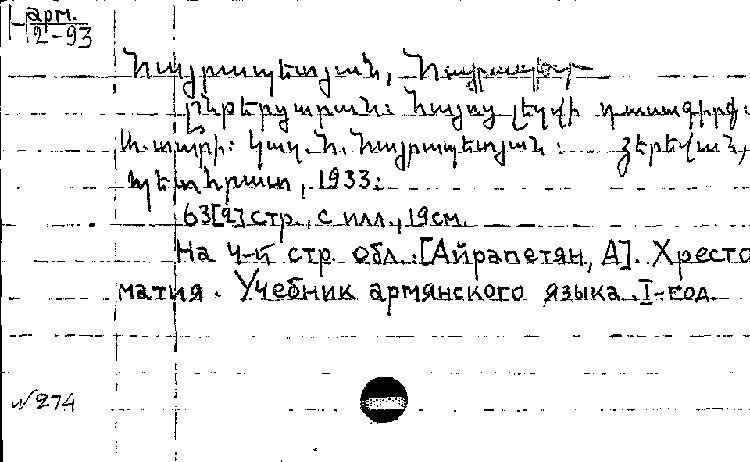 арм.
2-93
Հայրապետյան,
Ընթերցարան: Հայոց լեզվի դասագիրք:
Ա. տարի: Կազ. Հ. Հայրապետյան: Յերեվան,
պետհրատ, 1933:
63[2] стр., с илл., 19см.
На 4-й стр. обл.: [Айрапетян, А]. Хресто
матия. Учебник армянского языка. I-год.
№274